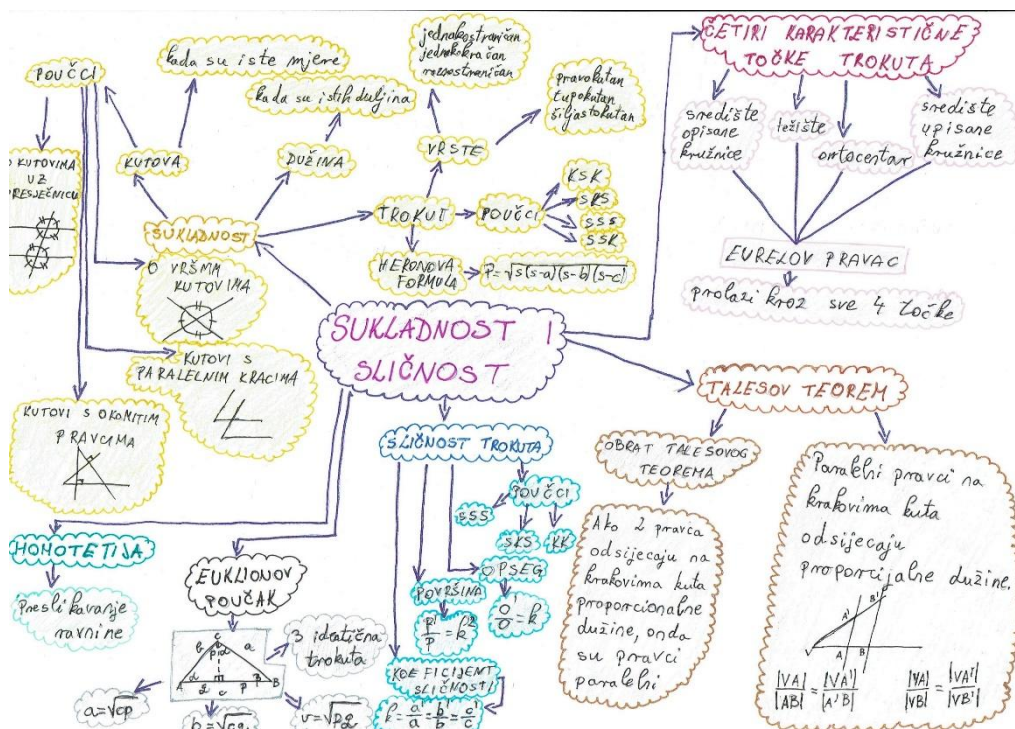 POUČCI
kada su iste mjere
kada su istih duljina
KUTOVA
DUŽINA
O KUTOVIMA
UZ
PRESJEČNICU
SUKLADNOST
O VRŠNIM
KUTOVIMA
KUTOVI S
PARALELNIM KRACIMA
KUTOVI S OKOMITIM
PRAVCIMA
jednakostraničan
jednakokračan
raznostraničan
pravokutan
tupokutan
šiljastokutan
VRSTE
TROKUT
POUČCI
KSK
SKS
SSS
SSK
HERONOVA
FORMULA
P=√s(s-a)(s-b)(s-c)
ČETIRI KARAKTERISTIČNE
TOČKE TROKUTA
središte
opisane
kružnice
težište
ortocentar
središte
upisane
kružnice
EURELOV PRAVAC
prolazi kroz sve 4 točke
SUKLADNOST I
SLIČNOST
TALESOV TEOREM
OBRAT TALESOVOG
TEOREMA
Ako 2 pravca
odsijecaju na
krakovima kuta
proporcionalne
dužine, onda
su pravci
paralelni
Paralelni pravci na
krakovima kuta
odsijecaju
proporcijalne dužine.
V A B A' B'
|VA|/|AB| = |VA'|/|A'B|
|VA|/|VB| = |VA'|/|VB'|
SLIČNOST TROKUTA
POUČCI
SSS
SKS
KK
OPSEG
O'/O = k
POVRŠINA
P'/P = k²
KOEFICIJENT
SLIČNOSTI
k = a'/a = b'/b = c'/c
HOMOTETIJA
Preslikavanje
ravnine
EUKLIONOV
POUČAK
3 identična
trokuta
a=√cp
b=√cq
v=√pq